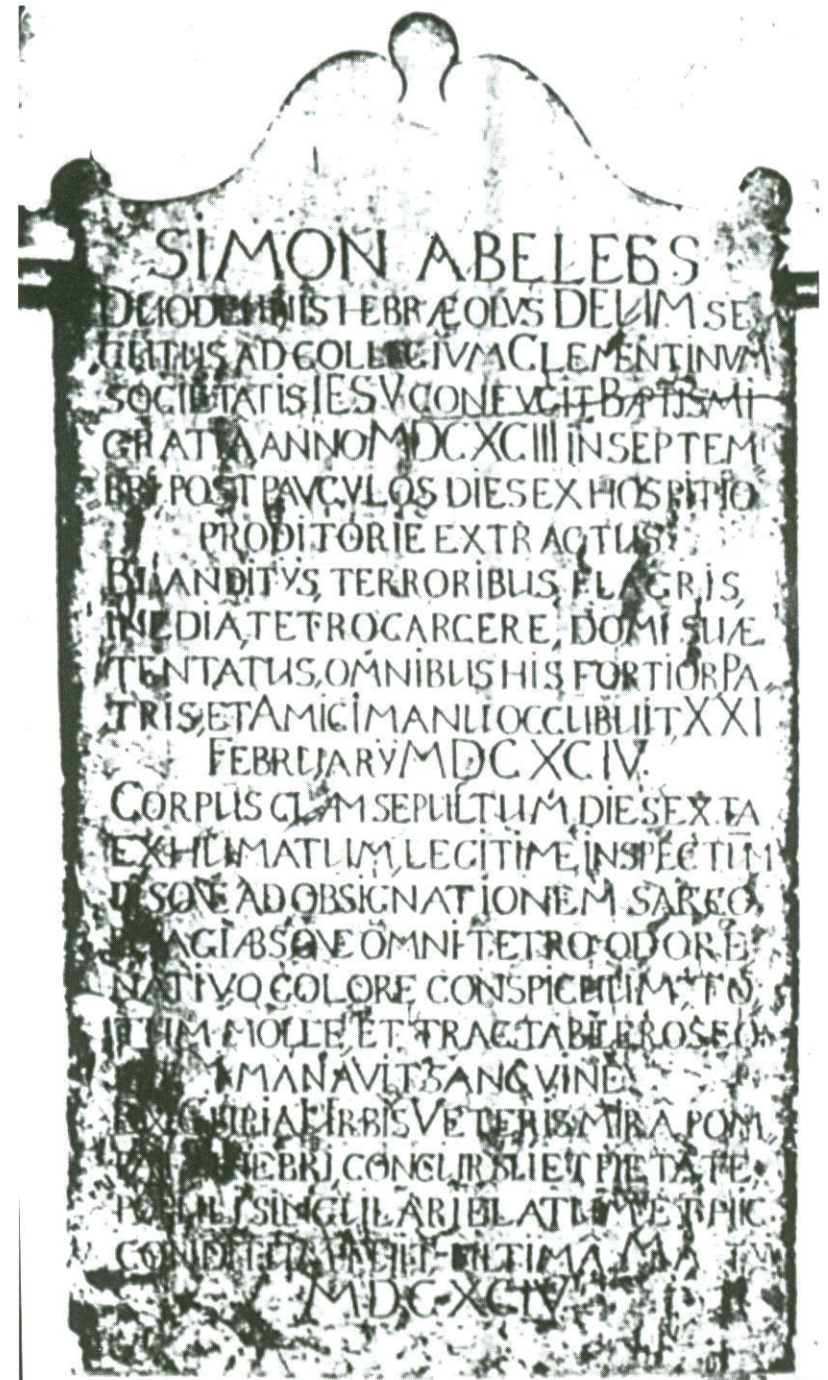 SIMON ABELEES
DUODENNIS HEBRÆOLVS DEUM SE
CUTUS, AD COLLEGIVM CLEMENTINVM
SOCIETATIS IESV CONFVGIT BAPTISMI
GRATIA ANNO MDCXCIII IN SEPTEM
BRI, POST PAVCVLOS DIES EX HOSPITIO
PRODITORIE EXTRACTUS,
BLANDITYS, TERRORIBUS, FLAGRIS,
INEDIA, TETRO CARCERE, DOMI SUÆ
TENTATUS, OMNIBUS HIS FORTIOR PA
TRIS, ET AMICI MANU OCCUBUIT, XXI
FEBRUARY MDCXCIV.
CORPUS CLAM SEPULTUM, DIE SEXTA
EXHUMATUM, LEGITIME INSPECTUM
USQVE AD OBSIGNATIONEM SARCO
PHAGI ABSQVE OMNI TETRO ODORE
NATIVO COLORE CONSPICUUM
MOLLE, ET TRACTABILE ROSEO
MANAVIT SANGVINE
EX CURIA URBIS VETERIS MIRA POM
FUNEBRI, CONCURSU ET PIETATE
POPULI SINGULARI ELATUM ET HIC
CONDITUM ULTIMA
MDCXCIV